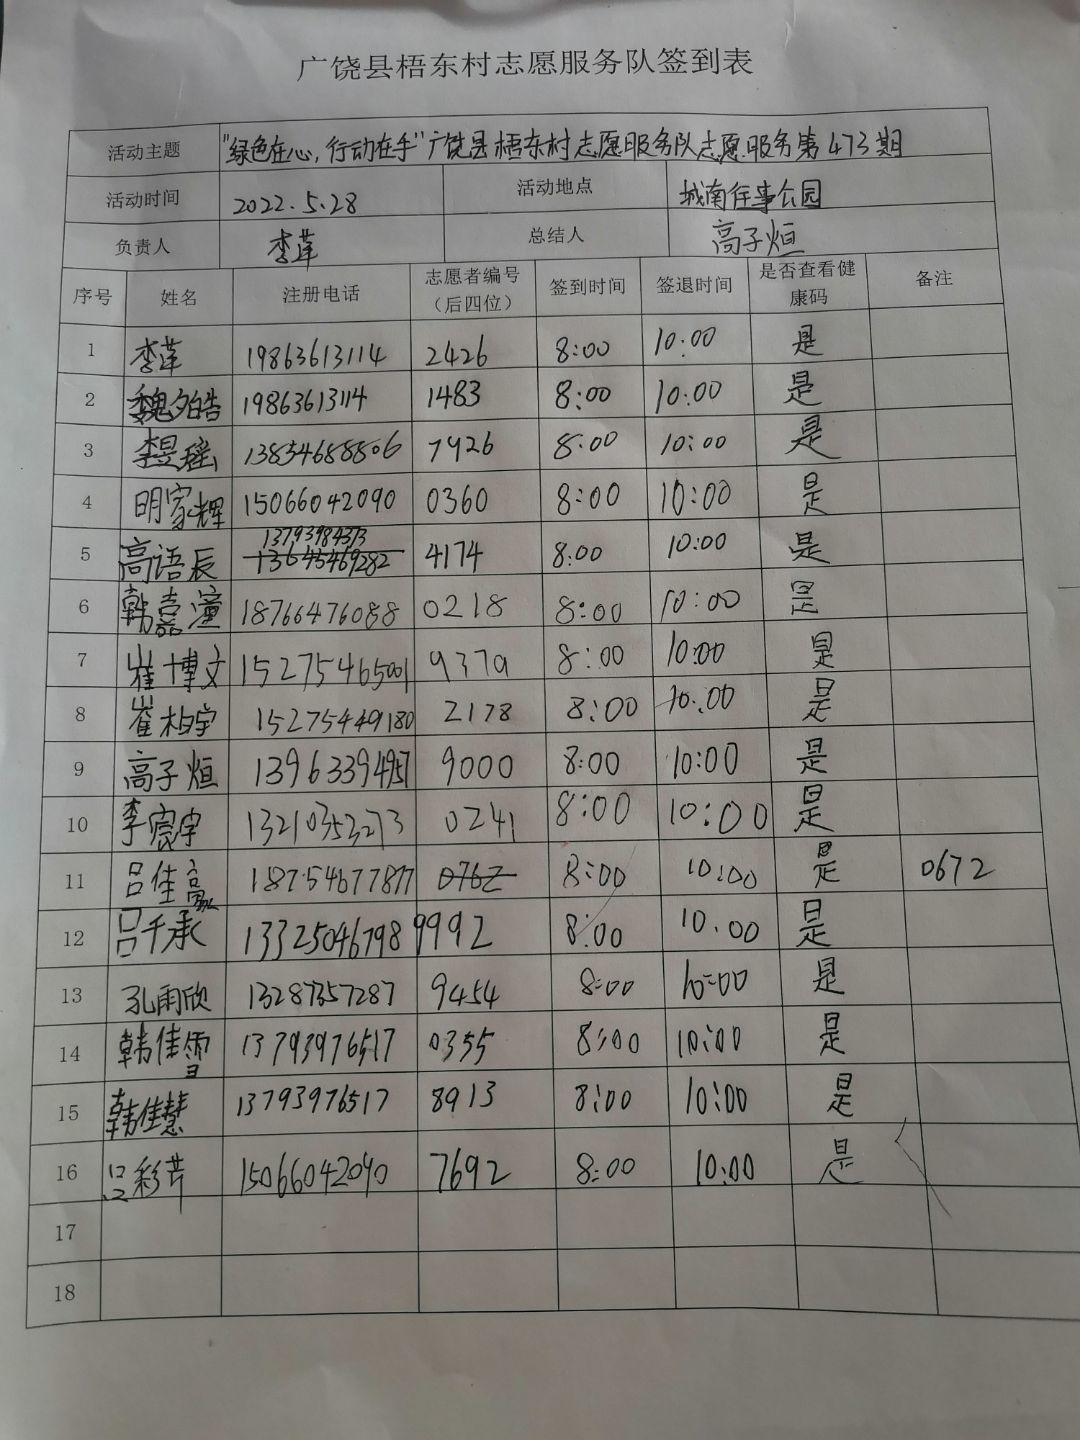 广饶县梧东村志愿服务队签到表
活动主题 "绿色在心,行动在手"广饶县梧东村志愿服务队志愿服务第473期
活动时间 2022.5.28 活动地点 城南往事公园
负责人 李萍 总结人 高子烜
序号 姓名 注册电话 志愿者编号（后四位） 签到时间 签退时间 是否查看健康码 备注
1 李萍 19863613114 2426 8:00 10:00 是
2 魏夕皓 19863613114 1483 8:00 10:00 是
3 李昱瑶 13854688806 7926 8:00 10:00 是
4 明家辉 15066042090 0360 8:00 10:00 是
5 高语辰 13793984373 13645469282 4174 8:00 10:00 是
6 韩嘉潼 18766476088 0218 8:00 10:00 是
7 崔博文 15275465001 9379 8:00 10:00 是
8 崔柏宇 15275449180 2178 8:00 10:00 是
9 高子烜 13963394957 9000 8:00 10:00 是
10 李宸宇 13210353273 0241 8:00 10:00 是
11 吕佳 18754677877 0762 8:00 10:00 是 0672
12 吕千承 13325046798 9992 8:00 10:00 是
13 孔雨欣 13287357287 9454 8:00 10:00 是
14 韩佳雪 13793976517 0355 8:00 10:00 是
15 韩佳慧 13793976517 8913 8:00 10:00 是
16 吕彩芹 15066042090 7692 8:00 10:00 是
17
18